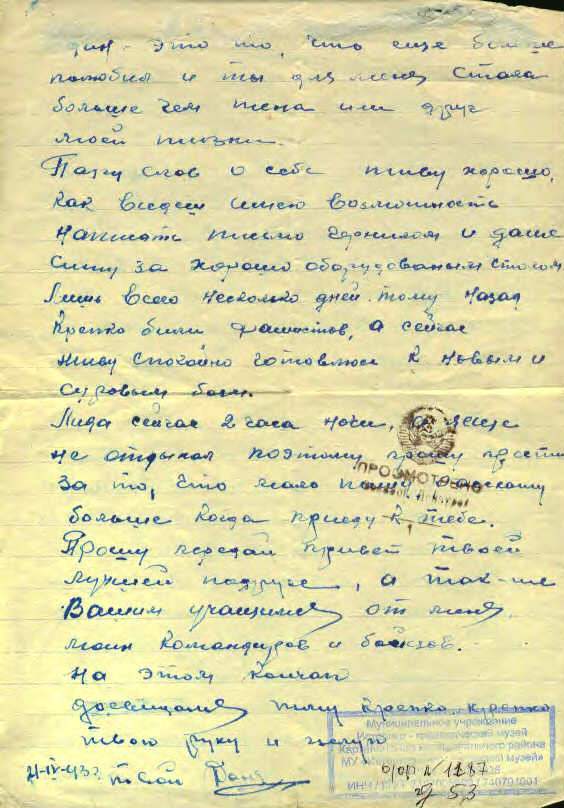 дин - это то, что еще больше
полюбил и ты для меня стала
больше чем жена или друг
моей жизни.
Пару слов о себе живу хорошо,
как видеш имею возможность
написать письмо чернилом и даже
сижу за хорошо оборудованым столом
Лишь всего несколько дней тому назад
Крепко били фашистов, а сейчас
живу спокойно готовлюсь к новым и
суровым боям.
Лида сейчас 2 часа ночи, а я еще
не отдыхал поэтому прошу прости
за то, что мало пишу
больше когда приеду к тебе.
Прошу передай привет твоей
лучшей подруге, а так-же
Вашим учащимся от меня,
моих командиров и бойцов.
На этом кончаю
досвиданя жму крепко, крепко
твою руку и
21-IV-43г. твой Ваня
ПРОСМОТРЕНО
Муниципальное учреждение
музей
района
музей»
ИНН
№ 1287
53